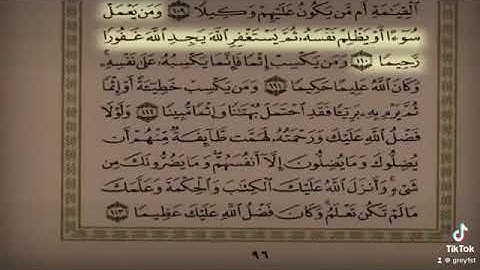 ٱلْقِيَٰمَةِ أَم مَّن يَكُونُ عَلَيْهِمْ وَكِيلًا ١٠٩ وَمَن يَعْمَلْ
سُوٓءًا أَوْ يَظْلِمْ نَفْسَهُۥ ثُمَّ يَسْتَغْفِرِ ٱللَّهَ يَجِدِ ٱللَّهَ غَفُورًا
رَّحِيمًا ١١٠ وَمَن يَكْسِبْ إِثْمًا فَإِنَّمَا يَكْسِبُهُۥ عَلَىٰ نَفْسِهِۦ ۚ
وَكَانَ ٱللَّهُ عَلِيمًا حَكِيمًا ١١١ وَمَن يَكْسِبْ خَطِيٓـَٔةً أَوْ إِثْمًا
ثُمَّ يَرْمِ بِهِۦ بَرِيٓـًٔا فَقَدِ ٱحْتَمَلَ بُهْتَٰنًا وَإِثْمًا مُّبِينًا ١١٢ وَلَوْلَا
فَضْلُ ٱللَّهِ عَلَيْكَ وَرَحْمَتُهُۥ لَهَمَّت طَّآئِفَةٌ مِّنْهُمْ أَن
يُضِلُّوكَ وَمَا يُضِلُّونَ إِلَّآ أَنفُسَهُمْ ۖ وَمَا يَضُرُّونَكَ مِن
شَىْءٍ ۚ وَأَنزَلَ ٱللَّهُ عَلَيْكَ ٱلْكِتَٰبَ وَٱلْحِكْمَةَ وَعَلَّمَكَ
مَا لَمْ تَكُن تَعْلَمُ ۚ وَكَانَ فَضْلُ ٱللَّهِ عَلَيْكَ عَظِيمًا ١١٣
٩٦
TikTok
@greyfst